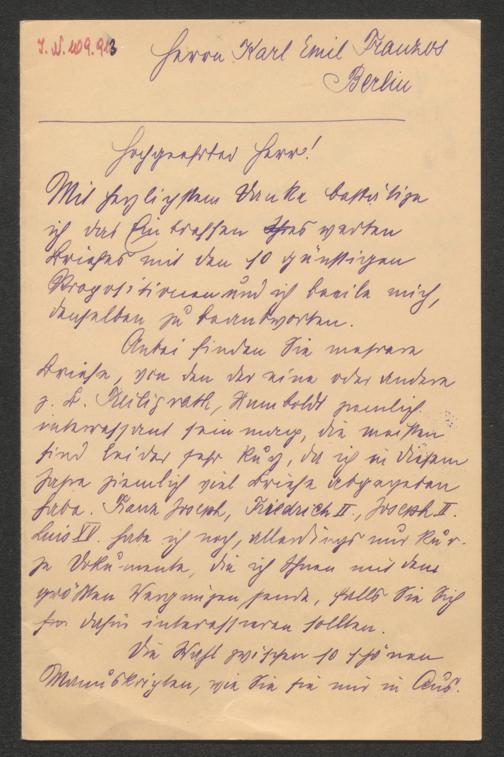 I. N. 109.913
Herrn Karl Emil Franzos
Berlin
Hochgeehrter Herr!
Mit herzlichstem Danke bestätige
ich das Eintreffen Ihres werten
Briefes mit den so günstigen
Propositionen und ich beeile mich,
denselben zu beantworten.
Anbei finden Sie mehrere
Briefe, von den der eine oder andere
z. B. Freiligrath, Humboldt ziemlich
interessant sein mag, die meisten
sind leider sehr kurz, da ich in diesem
Jahre ziemlich viel Briefe abgegeben
habe. Franz Joseph, Friedrich II, Joseph II.
Luis XV. habe ich noch, allerdings nur kur-
ze Dokumente, die ich Ihnen mit dem
größten Vergnügen sende, falls Sie Sich
dafür interessieren sollten.
Die Wahl zwischen so schönen
Manuskripten, wie Sie sie mir in Aus-